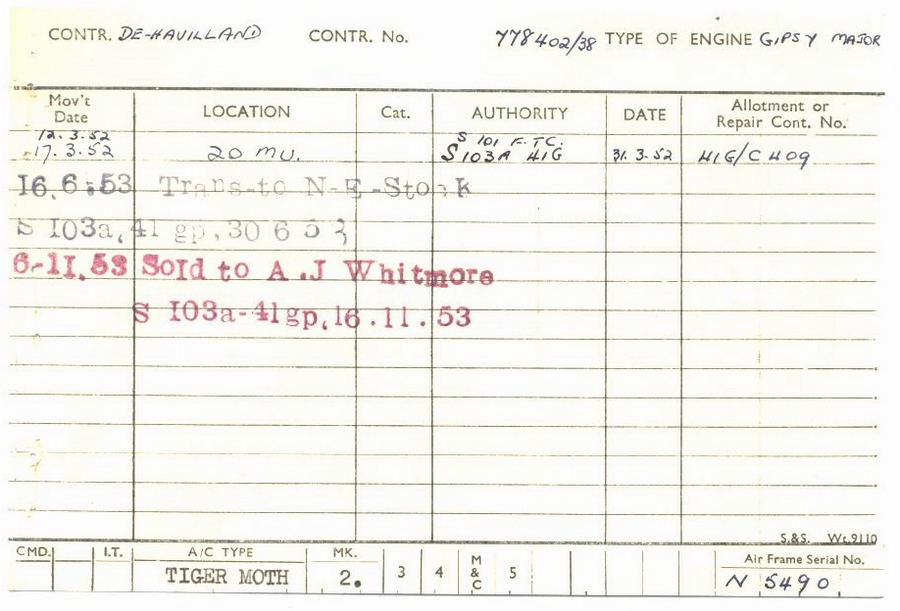 CONTR. DE-HAVILLAND CONTR. No. 778402/38 TYPE OF ENGINE GIPSY MAJOR
Mov't Date LOCATION Cat. AUTHORITY DATE Allotment or Repair Cont. No.
12.3.52 S 101 F.T.C.
17.3.52 20 MU. S 103A 41G 31.3.52 41G/C 409
16.6.53 Trans-to N-E-Stock
S 103a,41 gp,30 6 53
6-11.53 Sold to A.J Whitmore
S 103a-41gp,16.11.53
S.&S. Wt.9110
CMD. I.T. A/C TYPE MK. M & C Air Frame Serial No.
TIGER MOTH 2. 3 4 5 N 5490